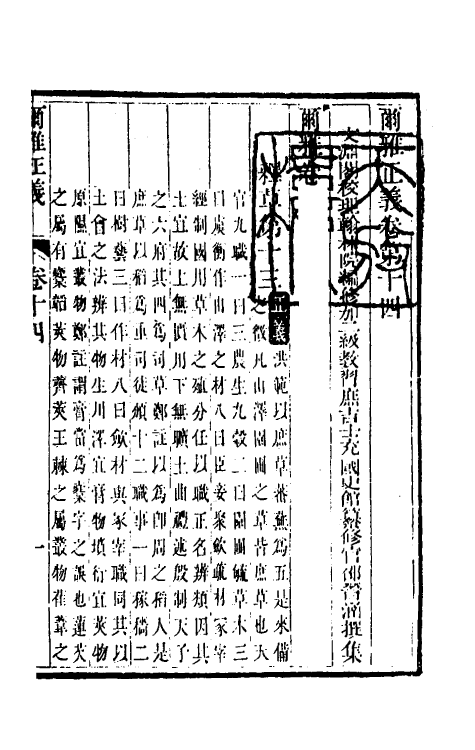 爾雅正義卷第十四
文淵閣校理翰林院編修加一級教習庶吉士充國史館纂修官邵晉涵撰集
爾雅卷
釋草第十三
正義
洪範以庶草蕃蕪爲五是來備
之徵凡山澤園圃之草皆庶草也大
官九職一曰三農生九穀二曰園圃毓草木三
曰虞衡作山澤之材八曰臣妾聚斂疏材冢宰
經制國用草木之殖分任以職正名辨類因其
土宜故上無橫用下無曠土曲禮述殷制天子
之六府其四爲司草鄭註以爲卽周之稻人是
庶草以稻爲重司徒頒十二職事一曰稼穡二
曰樹藝三曰作材八曰斂材與冢宰職同其以
土會之法辨其物生川澤宜膏物墳衍宜莢物
原隰宜叢物鄭註謂膏當爲櫜字之誤也蓮芡
之屬有櫜韜莢物薺莢王棘之屬叢物萑葦之
爾雅正義
卷十四
一